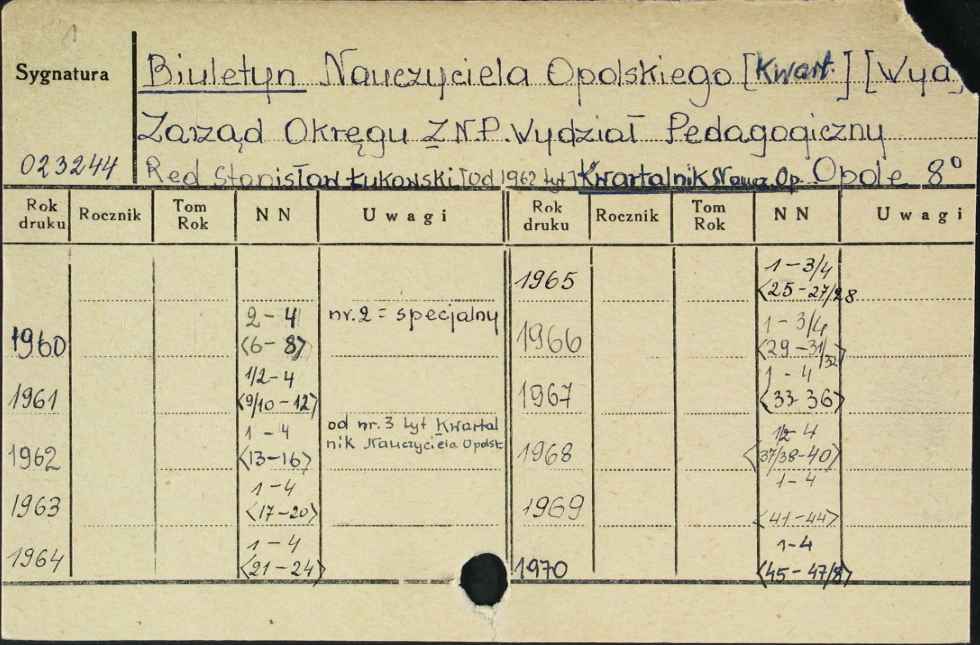 1
Sygnatura
Biuletyn Nauczyciela Opolskiego [Kwart.] [Wyd
Zarząd Okręgu Z.N.P. Wydział Pedagogiczny
023244
Red Stanisław Łukowski [Od 1962 tyt] Kwartalnik Naucz. Op. Opole 8°
Rok druku Rocznik Tom Rok NN Uwagi Rok druku Rocznik Tom Rok NN Uwagi
1965 1-3/4
<25-27/28
1960 2-4 nr.2 = specjalny
<6-8>
1966 1-3/4
<29-31/32>
1961 1/2-4
<9/10-12>
1967 1-4
<33-36>
1962 1-4 od nr. 3 tyt Kwartal
<13-16> nik Nauczyciela Opolsk.
1968 1/2-4
<37/38-40>
1963 1-4
<17-20>
1969 1-4
<41-44>
1964 1-4
<21-24>
1970 1-4
<45-47/8>